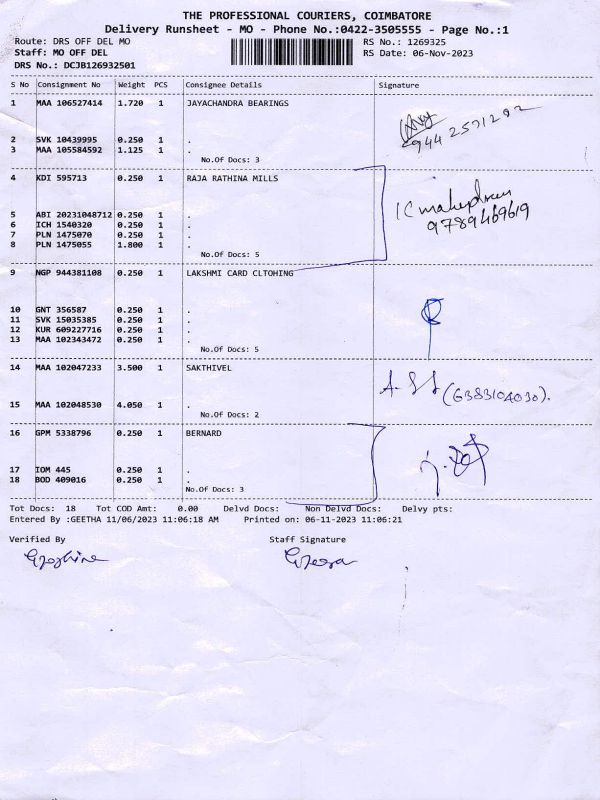 THE PROFESSIONAL COURIERS, COIMBATORE
Delivery Runsheet - MO - Phone No.:0422-3505555 - Page No.:1
Route: DRS OFF DEL MO RS No.: 1269325
Staff: MO OFF DEL RS Date: 06-Nov-2023
DRS No.: DCJB126932501
S No Consignment No Weight PCS Consignee Details Signature
1 MAA 106527414 1.720 1 JAYACHANDRA BEARINGS
2 SVK 10439995 0.250 1 .
3 MAA 105584592 1.125 1 .
No.Of Docs: 3
4 KDI 595713 0.250 1 RAJA RATHINA MILLS
9789469619
5 ABI 20231048712 0.250 1 .
6 ICH 1540320 0.250 1 .
7 PLN 1475070 0.250 1 .
8 PLN 1475055 1.800 1 .
No.Of Docs: 5
9 NGP 944381108 0.250 1 LAKSHMI CARD CLTOHING
10 GNT 356587 0.250 1 .
11 SVK 15035385 0.250 1 .
12 KUR 609227716 0.250 1 .
13 MAA 102343472 0.250 1 .
No.Of Docs: 5
14 MAA 102047233 3.500 1 SAKTHIVEL
(6383104030).
15 MAA 102048530 4.050 1 .
No.Of Docs: 2
16 GPM 5338796 0.250 1 BERNARD
17 IOM 445 0.250 1 .
18 BOD 409016 0.250 1 .
No.Of Docs: 3
Tot Docs: 18 Tot COD Amt: 0.00 Delvd Docs: Non Delvd Docs: Delvy pts:
Entered By :GEETHA 11/06/2023 11:06:18 AM Printed on: 06-11-2023 11:06:21
Verified By Staff Signature